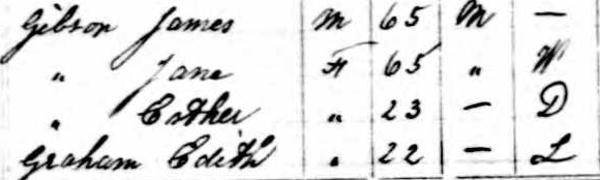 Gibson James M 65 M —
" Jane F 65 " W
" Esther " 23 — D
Graham Edith " 22 — L